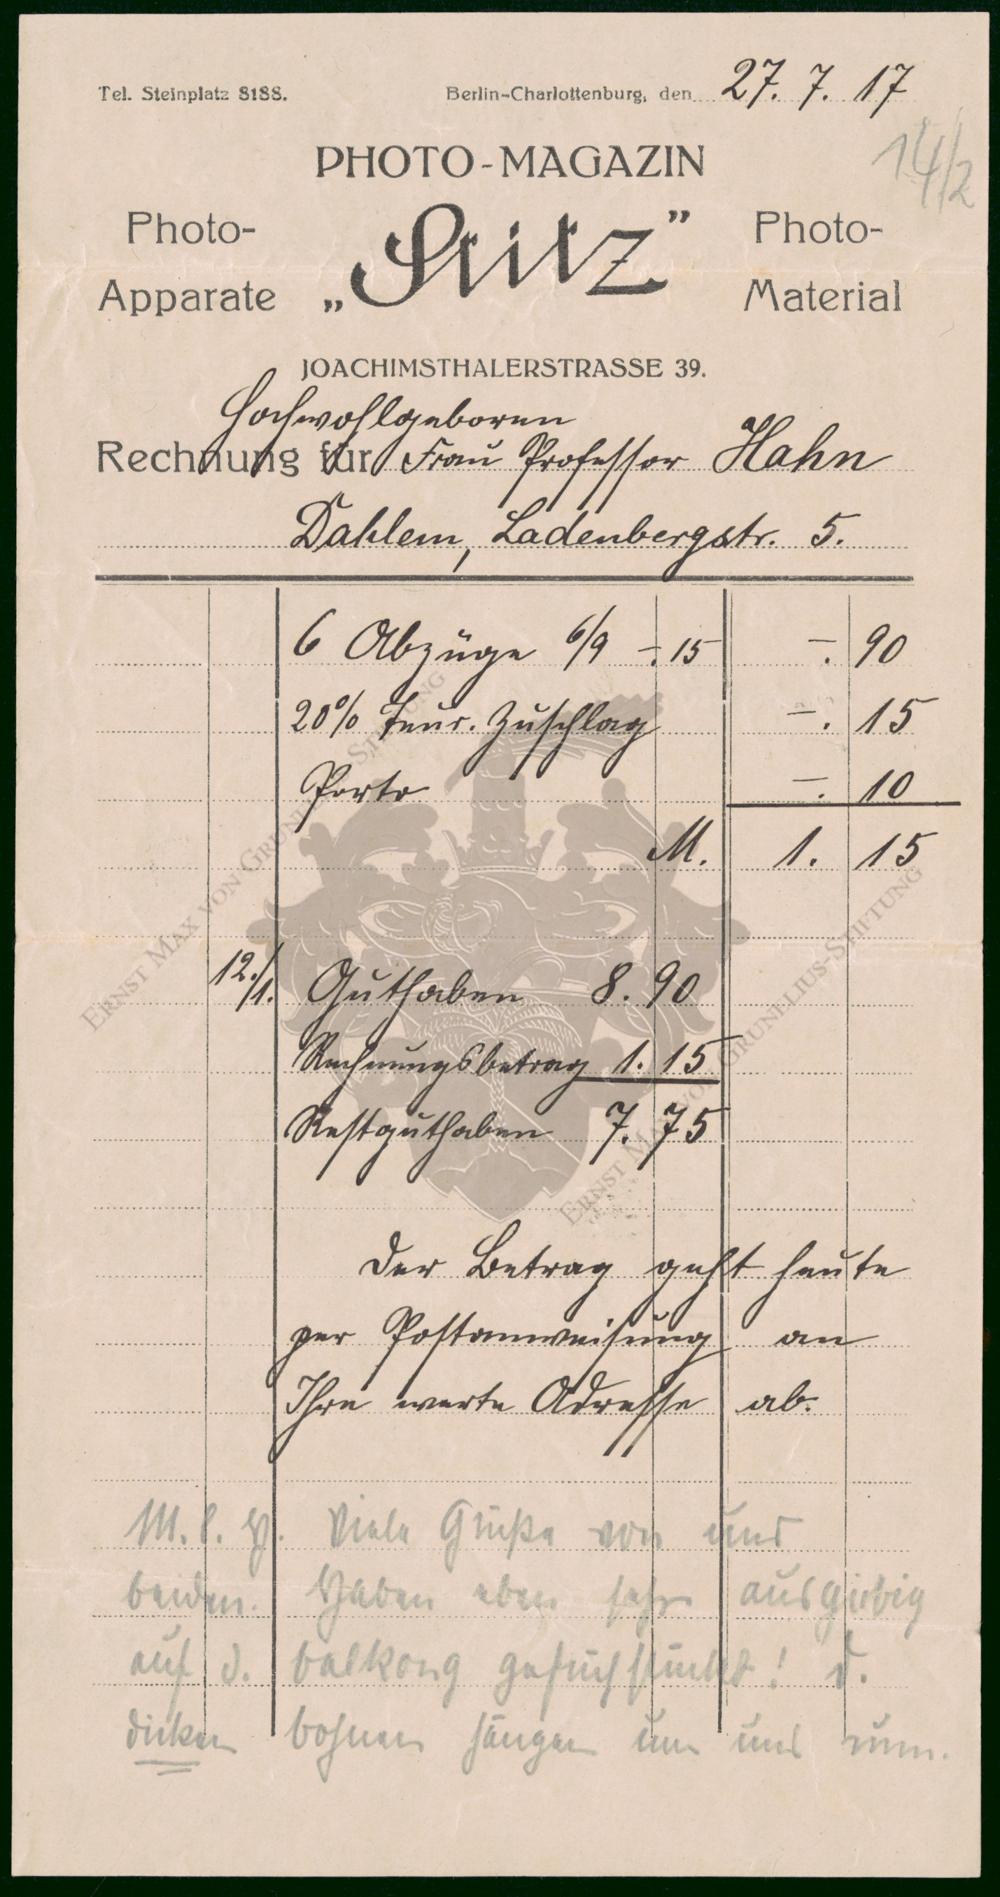 Tel. Steinplatz 8188.
Berlin-Charlottenburg, den 27. 7. 17
14/2
PHOTO-MAGAZIN
Photo-
Apparate
„Stitz”
Photo-
Material
JOACHIMSTHALERSTRASSE 39.
Hochwohlgeboren
Rechnung für Frau Professor Hahn
Dahlem, Ladenbergstr. 5.
6 Abzüge 6/9 -.15 -. 90
20% Teur. Zuschlag -. 15
Porto -. 10
M. 1. 15
12./1. Guthaben 8.90
Rechnungsbetrag 1.15
Restguthaben 7.75
Der Betrag geht heute
per Postanweisung an
Ihre werte Adresse ab.
M. l. H. Viele Grüße von uns
beiden. Haben eben sehr ausgiebig
auf d. balkong gefrühstückt! d.
dicken bohnen hängen um uns rum.
ERNST MAX VON GRUNELIUS-STIFTUNG
ERNST MAX VON GRUNELIUS-STIFTUNG